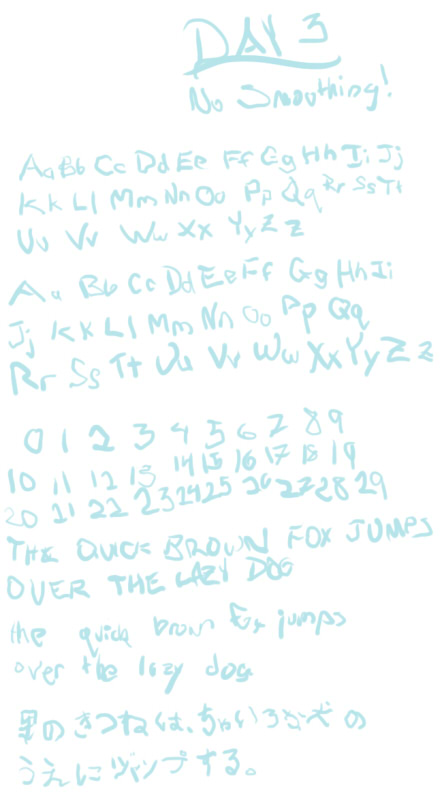 DAY 3
No Smoothing!
Aa Bb Cc Dd Ee Ff Gg Hh Ii Jj
Kk Ll Mm Nn Oo Pp Qq Rr Ss Tt
Uu Vv Ww Xx Yy Zz
Aa Bb Cc Dd Ee Ff Gg Hh Ii
Jj Kk Ll Mm Nn Oo Pp Qq
Rr Ss Tt Uu Vv Ww Xx Yy Zz
0 1 2 3 4 5 6 7 8 9
10 11 12 13 14 15 16 17 18 19
20 21 22 23 24 25 26 27 28 29
THE QUICK BROWN FOX JUMPS
OVER THE LAZY DOG
the quick brown fox jumps
over the lazy dog
星のきつねは、ちゃいろかべの
うえにジャンプする。